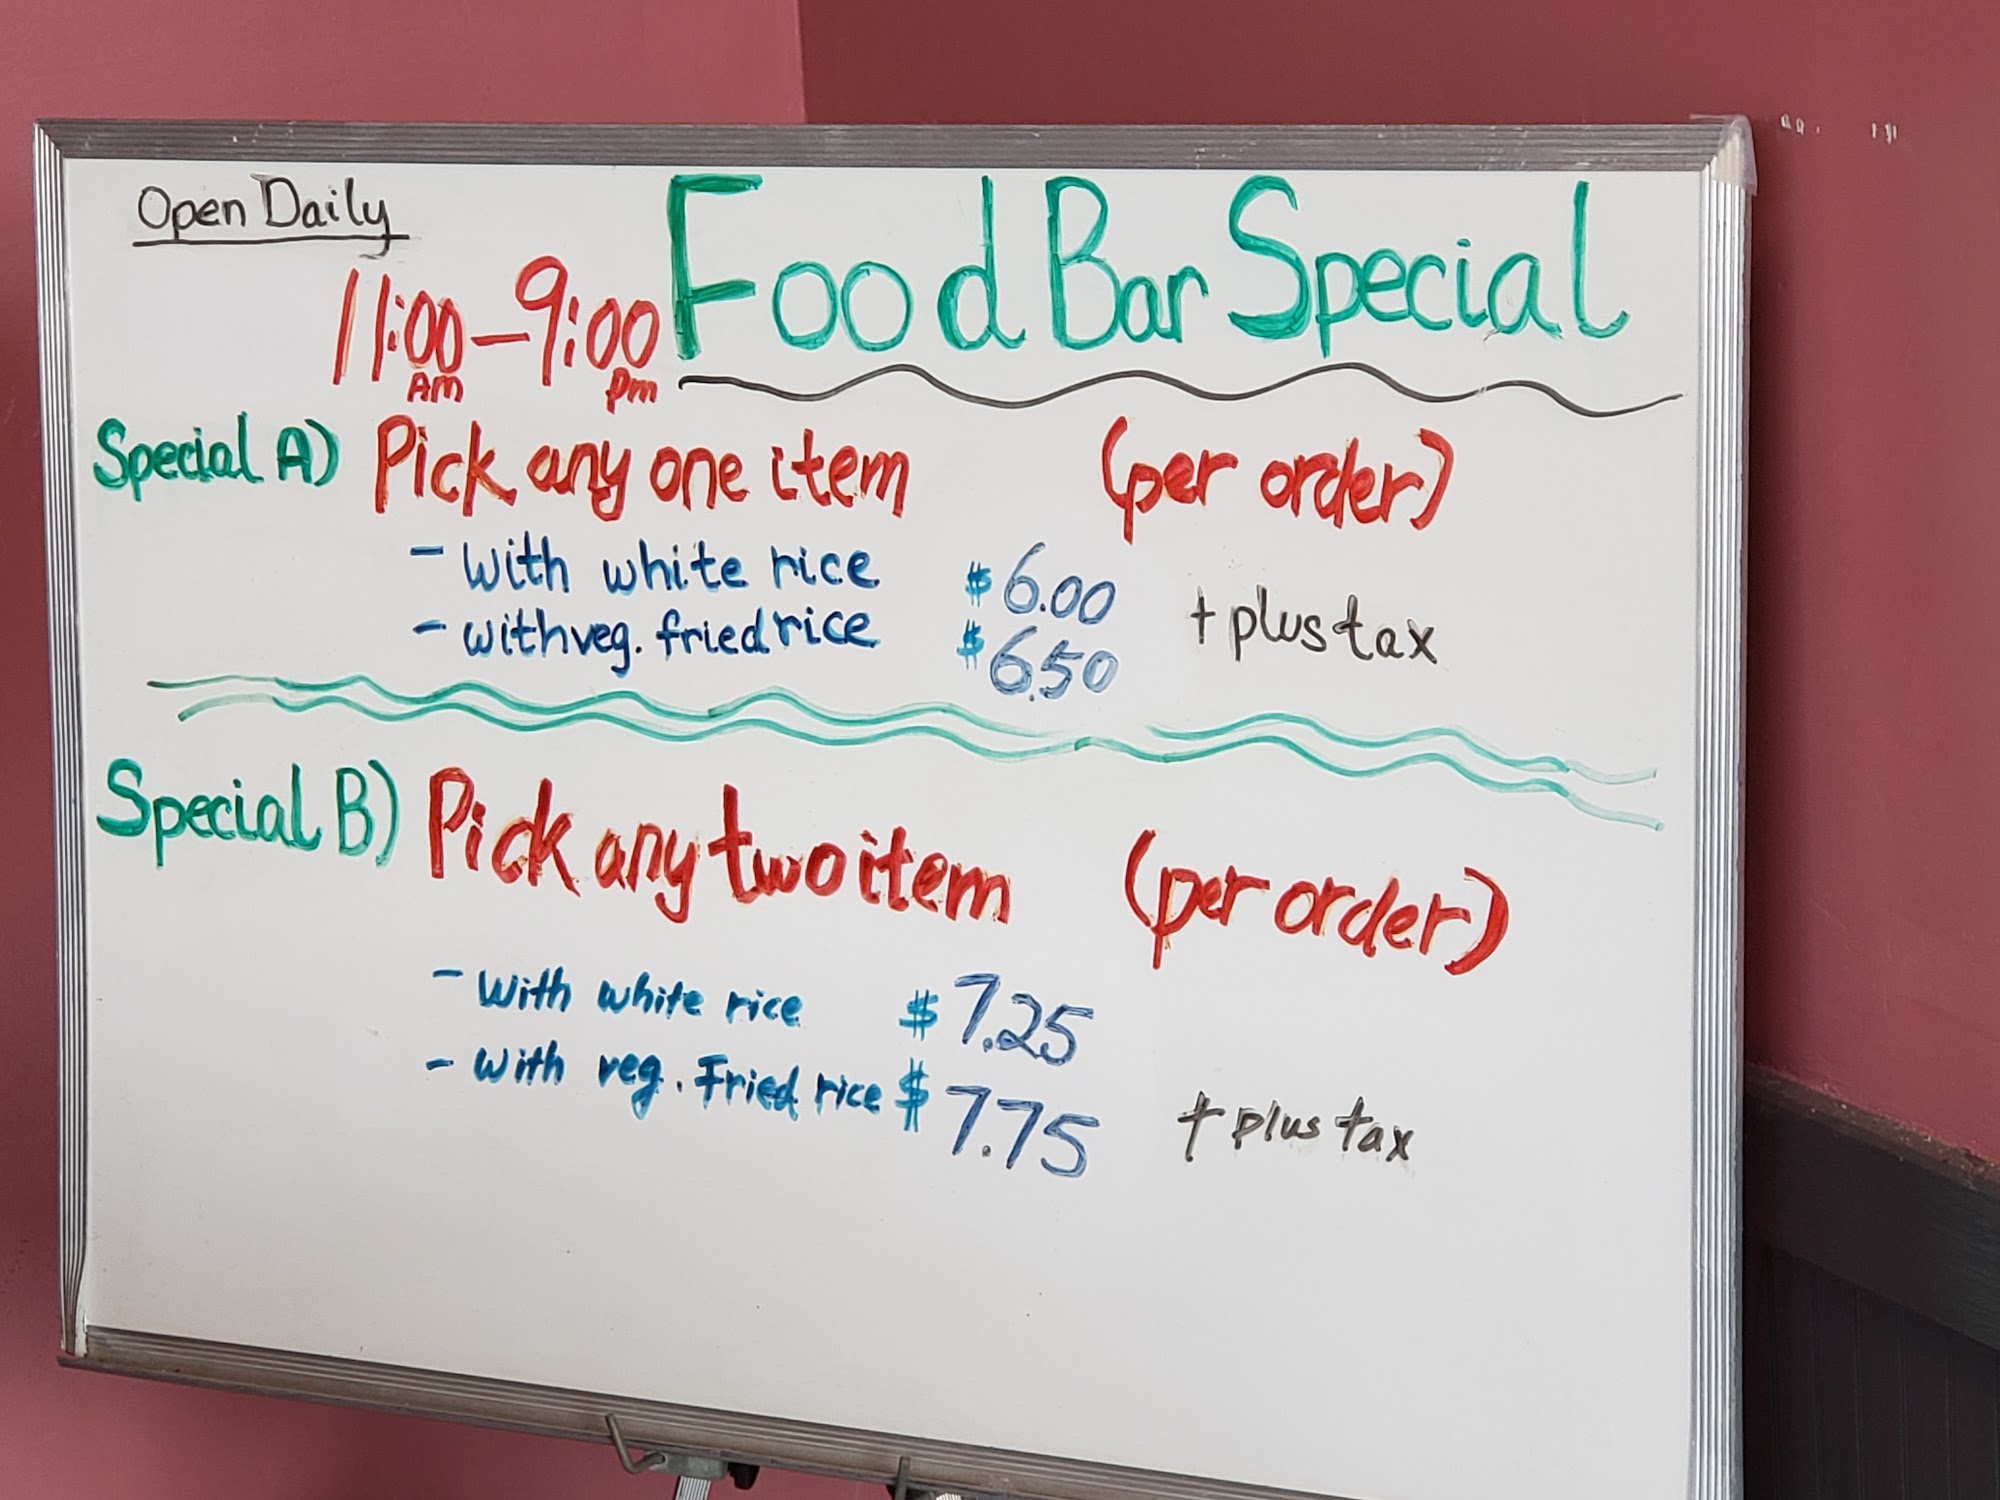 Open Daily
Food Bar Special
11:00 AM – 9:00 pm
Special A) Pick any one item (per order)
- with white rice $6.00
- with veg. fried rice $6.50 + plus tax
Special B) Pick any two item (per order)
- with white rice $7.25
- with veg. Fried rice $7.75 + plus tax